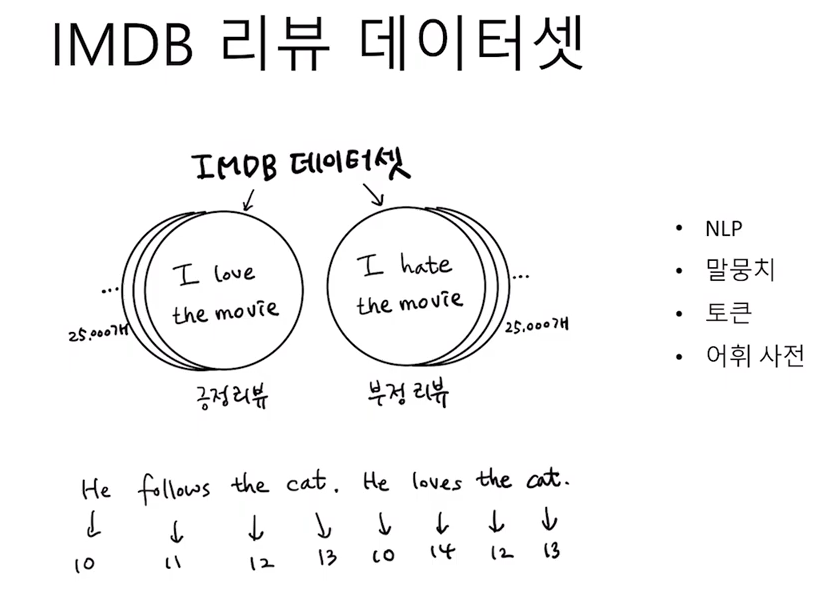 IMDB 리뷰 데이터셋
IMDB 데이터셋
I love
the movie
...
25.000개
긍정리뷰
I hate
the movie
...
25.000개
부정리뷰
• NLP
• 말뭉치
• 토큰
• 어휘 사전
He follows the cat. He loves the cat.
10 11 12 13 10 14 12 13